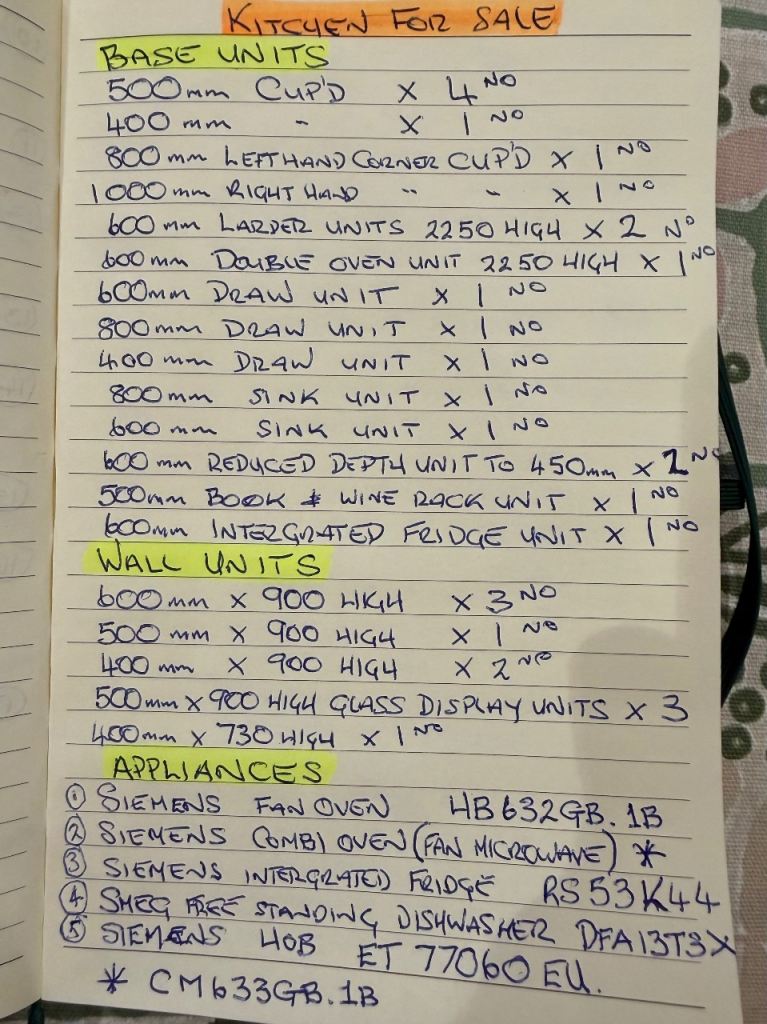 KITCHEN FOR SALE
BASE UNITS
500mm CUP'D x 4 NO
400 mm - x 1 NO
800mm LEFTHAND CORNER CUP'D x 1 NO
1000mm RIGHT HAND " - x 1 NO
600 mm LARDER UNITS 2250 HIGH x 2 NO
600mm DOUBLE OVEN UNIT 2250 HIGH x 1 NO
600mm DRAW UNIT x 1 NO
800mm DRAW UNIT x 1 NO
400 mm DRAW UNIT x 1 NO
800mm SINK UNIT x 1 NO
600mm SINK UNIT x 1 NO
600mm REDUCED DEPTH UNIT TO 450mm x 2 NO
500mm BOOK & WINE RACK UNIT x 1 NO
600mm INTERGRATED FRIDGE UNIT x 1 NO
WALL UNITS
600mm x 900 HIGH x 3 NO
500 mm x 900 HIGH x 1 NO
400 mm x 900 HIGH x 2 NO
500mm x 900 HIGH GLASS DISPLAY UNITS x 3
400mm x 730 HIGH x 1 NO
APPLIANCES
① SIEMENS FAN OVEN HB632GB.1B
② SIEMENS COMBI OVEN (FAN MICROWAVE) *
③ SIEMENS INTERGRATED FRIDGE RS53K44
④ SMEG FREE STANDING DISHWASHER DFA13T3X
⑤ SIEMENS HOB ET 77060 EU.
* CM633GB.1B